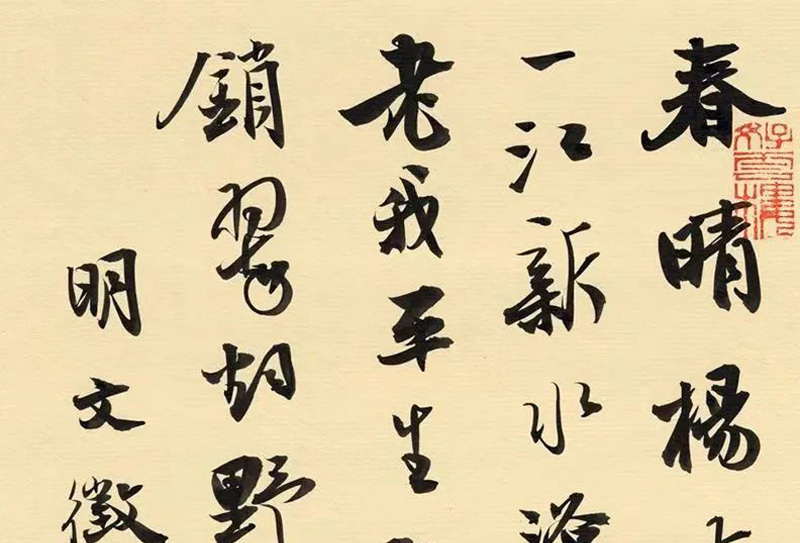 春晴楊
一江新水
老我平生
銷胡野
明文徵